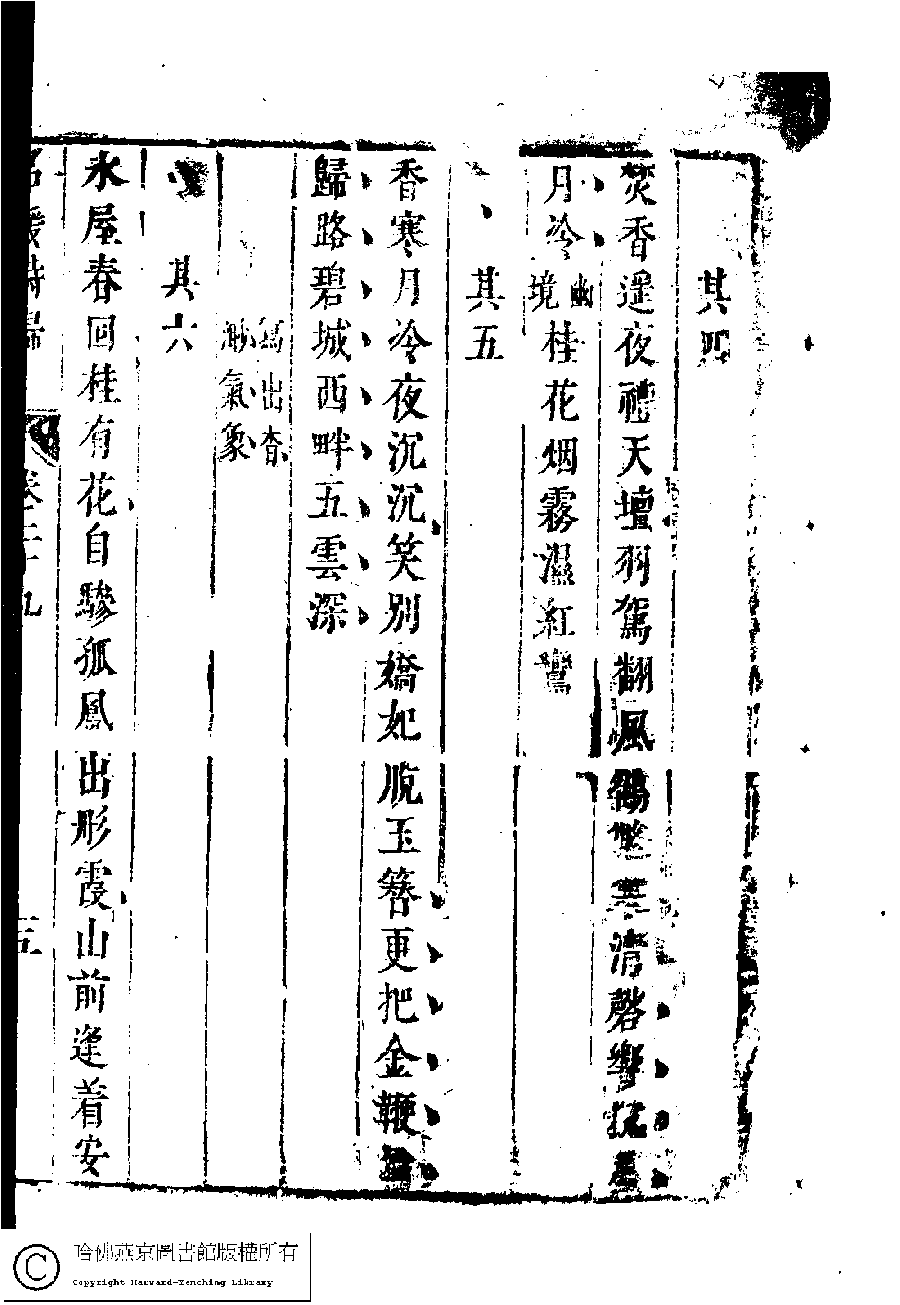 其四
焚香遥夜禮天壇羽駕翻風鶴
寒清磬響
月冷幽境桂花烟霧濕紅鸞
其五
香寒月冷夜沉沉笑別嬌妃脫玉簪更把金鞭
歸路碧城西畔五雲深
寫出杳
渺氣象
其六
水屋春回桂有花自驂孤鳳出彤霞山前逢着安
名媛詩歸
卷二十九
五
哈佛燕京圖書館版權所有
Copyright Harvard-Yenching Library